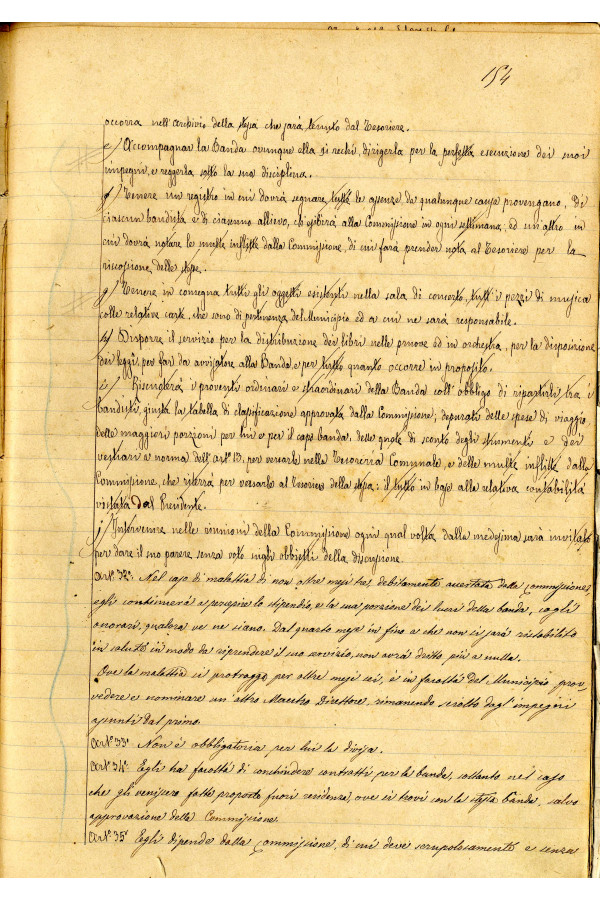 154
occorra nell'archivio della stessa che sarà tenuto dal Tesoriere.
e) Accompagnar la Banda ovunque ella si rechi, dirigerla per la perfetta esecuzione dei suoi
impegni, e reggerla sotto la sua disciplina.
f) Tenere un registro in cui dovrà segnare tutte le assenze da qualunque causa provengano, di
ciascun bandista e di ciascuno allievo, ch'esibirà alla Commissione in ogni settimana, ed un altro in
cui dovrà notare le multe inflitte dalla Commissione, di cui farà prender nota al Tesoriere per la
riscossione delle stesse.
g) Tenere in consegna tutti gli oggetti esistenti nella sala di concerto, tutti i pezzi di musica
colle relative carte, che sono di pertinenza del Municipio, ed a cui ne sarà responsabile.
h) Disporre il servizio per la distribuzione dei libri nelle pruove ed in orchestra, per la disposizione
dei leggi, per far da avvisatore alla Banda, e per tutto quanto occorre in proposito.
i) Riscuoterà i proventi ordinari e straordinari della Banda coll'obbligo di ripartirli tra i
bandisti, giusta la tabella di classificazione approvata dalla Commissione; depurati delle spese di viaggio,
delle maggiori porzioni per lui e per il capo banda, delle quote di sconto degli strumenti e dei
vestiari a norma dell'art. 13, per versarle nella Tesoreria Comunale, e delle multe inflitte dalla
Commissione, che riterrà, per versarle al Tesoriere della stessa: il tutto in base alla relativa contabilità
vistata dal Presidente.
j) Intervenire nelle riunioni della Commissione ogni qual volta dalla medesima sarà invitato
per dare il suo parere senza voto sugli obbietti della discussione.
Art.º 32º: Nel caso di malattia di non oltre mesi tre, debitamente accertata dalla Commissione,
egli continuerà a percepire lo stipendio, e la sua porzione dei lucri della banda, cogli
onorari, qualora ve ne siano. Dal quarto mese in fino a che non si sarà ristabilito
in salute in modo da riprendere il suo servizio, non avrà dritto più a nulla.
Ove la malattia si protragga per oltre mesi sei, è in facoltà del Municipio prov-
vedere e nominare un'altro Maestro Direttore, rimanendo sciolto dagl'impegni
assunti dal primo.
Art.º 33º Non è obbligatoria per lui la divisa.
Art.º 34º: Egli ha facoltà di conchiudere contratti per la banda, soltanto nel caso
che gli venissero fatte proposte fuori residenza, ove si trovi con la stessa banda, salvo
approvazione della Commissione.
Art.º 35º Egli dipende dalla Commissione, di cui deve scrupolosamente e senza